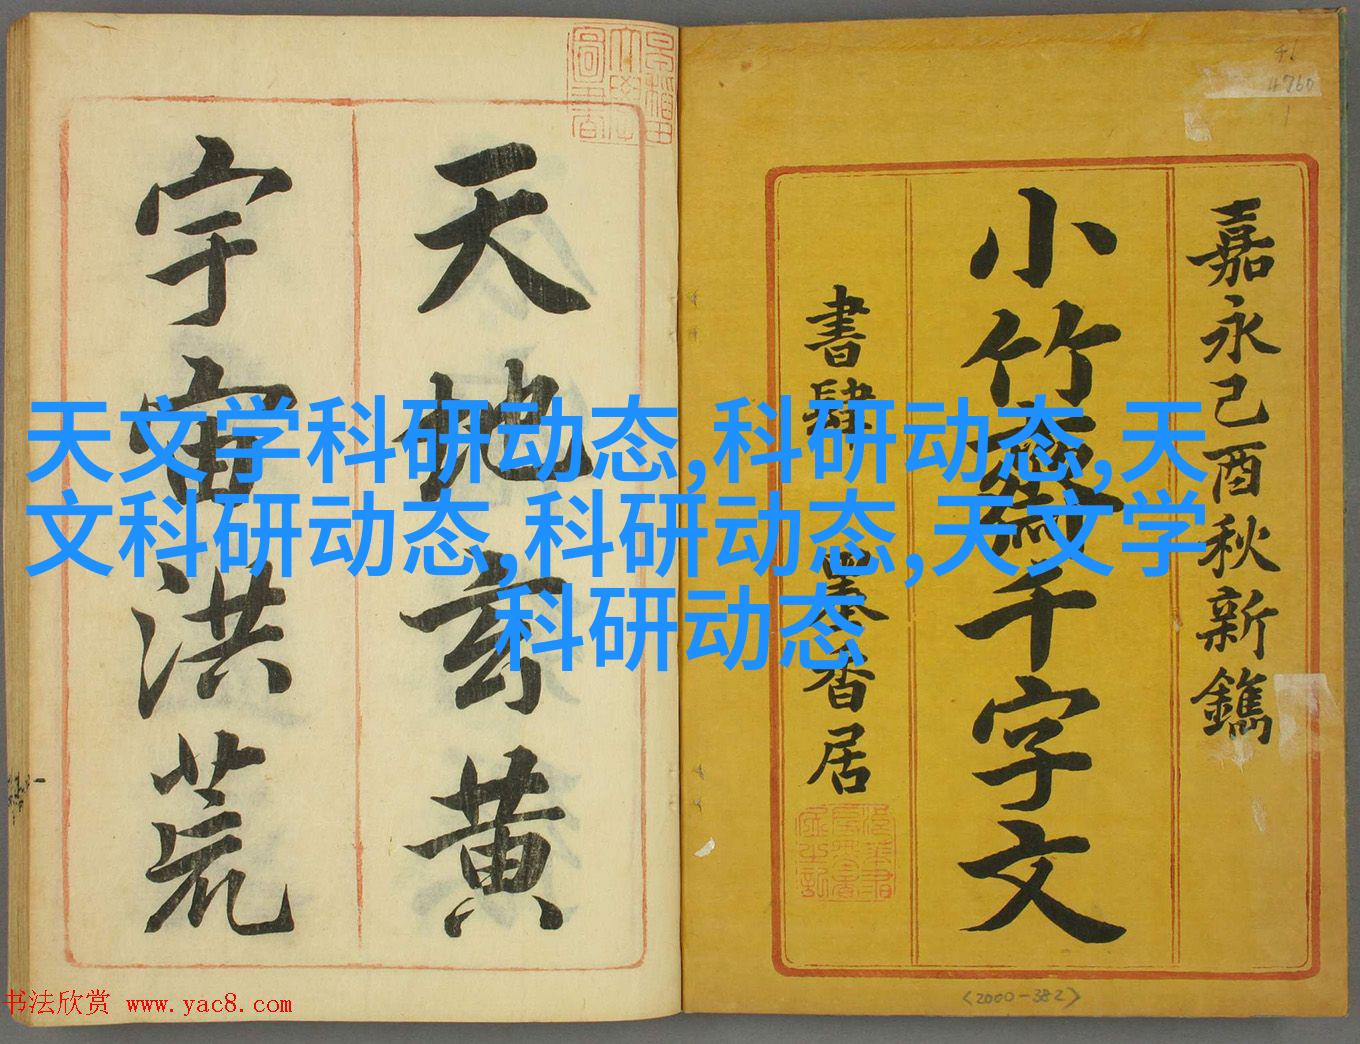 嘉永己酉秋新鐫
小竹齋千字文
書肆 墨香居
天地玄黄
宇宙洪荒
天文学科研动态,科研动态,天
文科研动态,科研动态,天文学
科研动态
46
4760
1
<2000-382>
书法欣赏 www.yac8.com